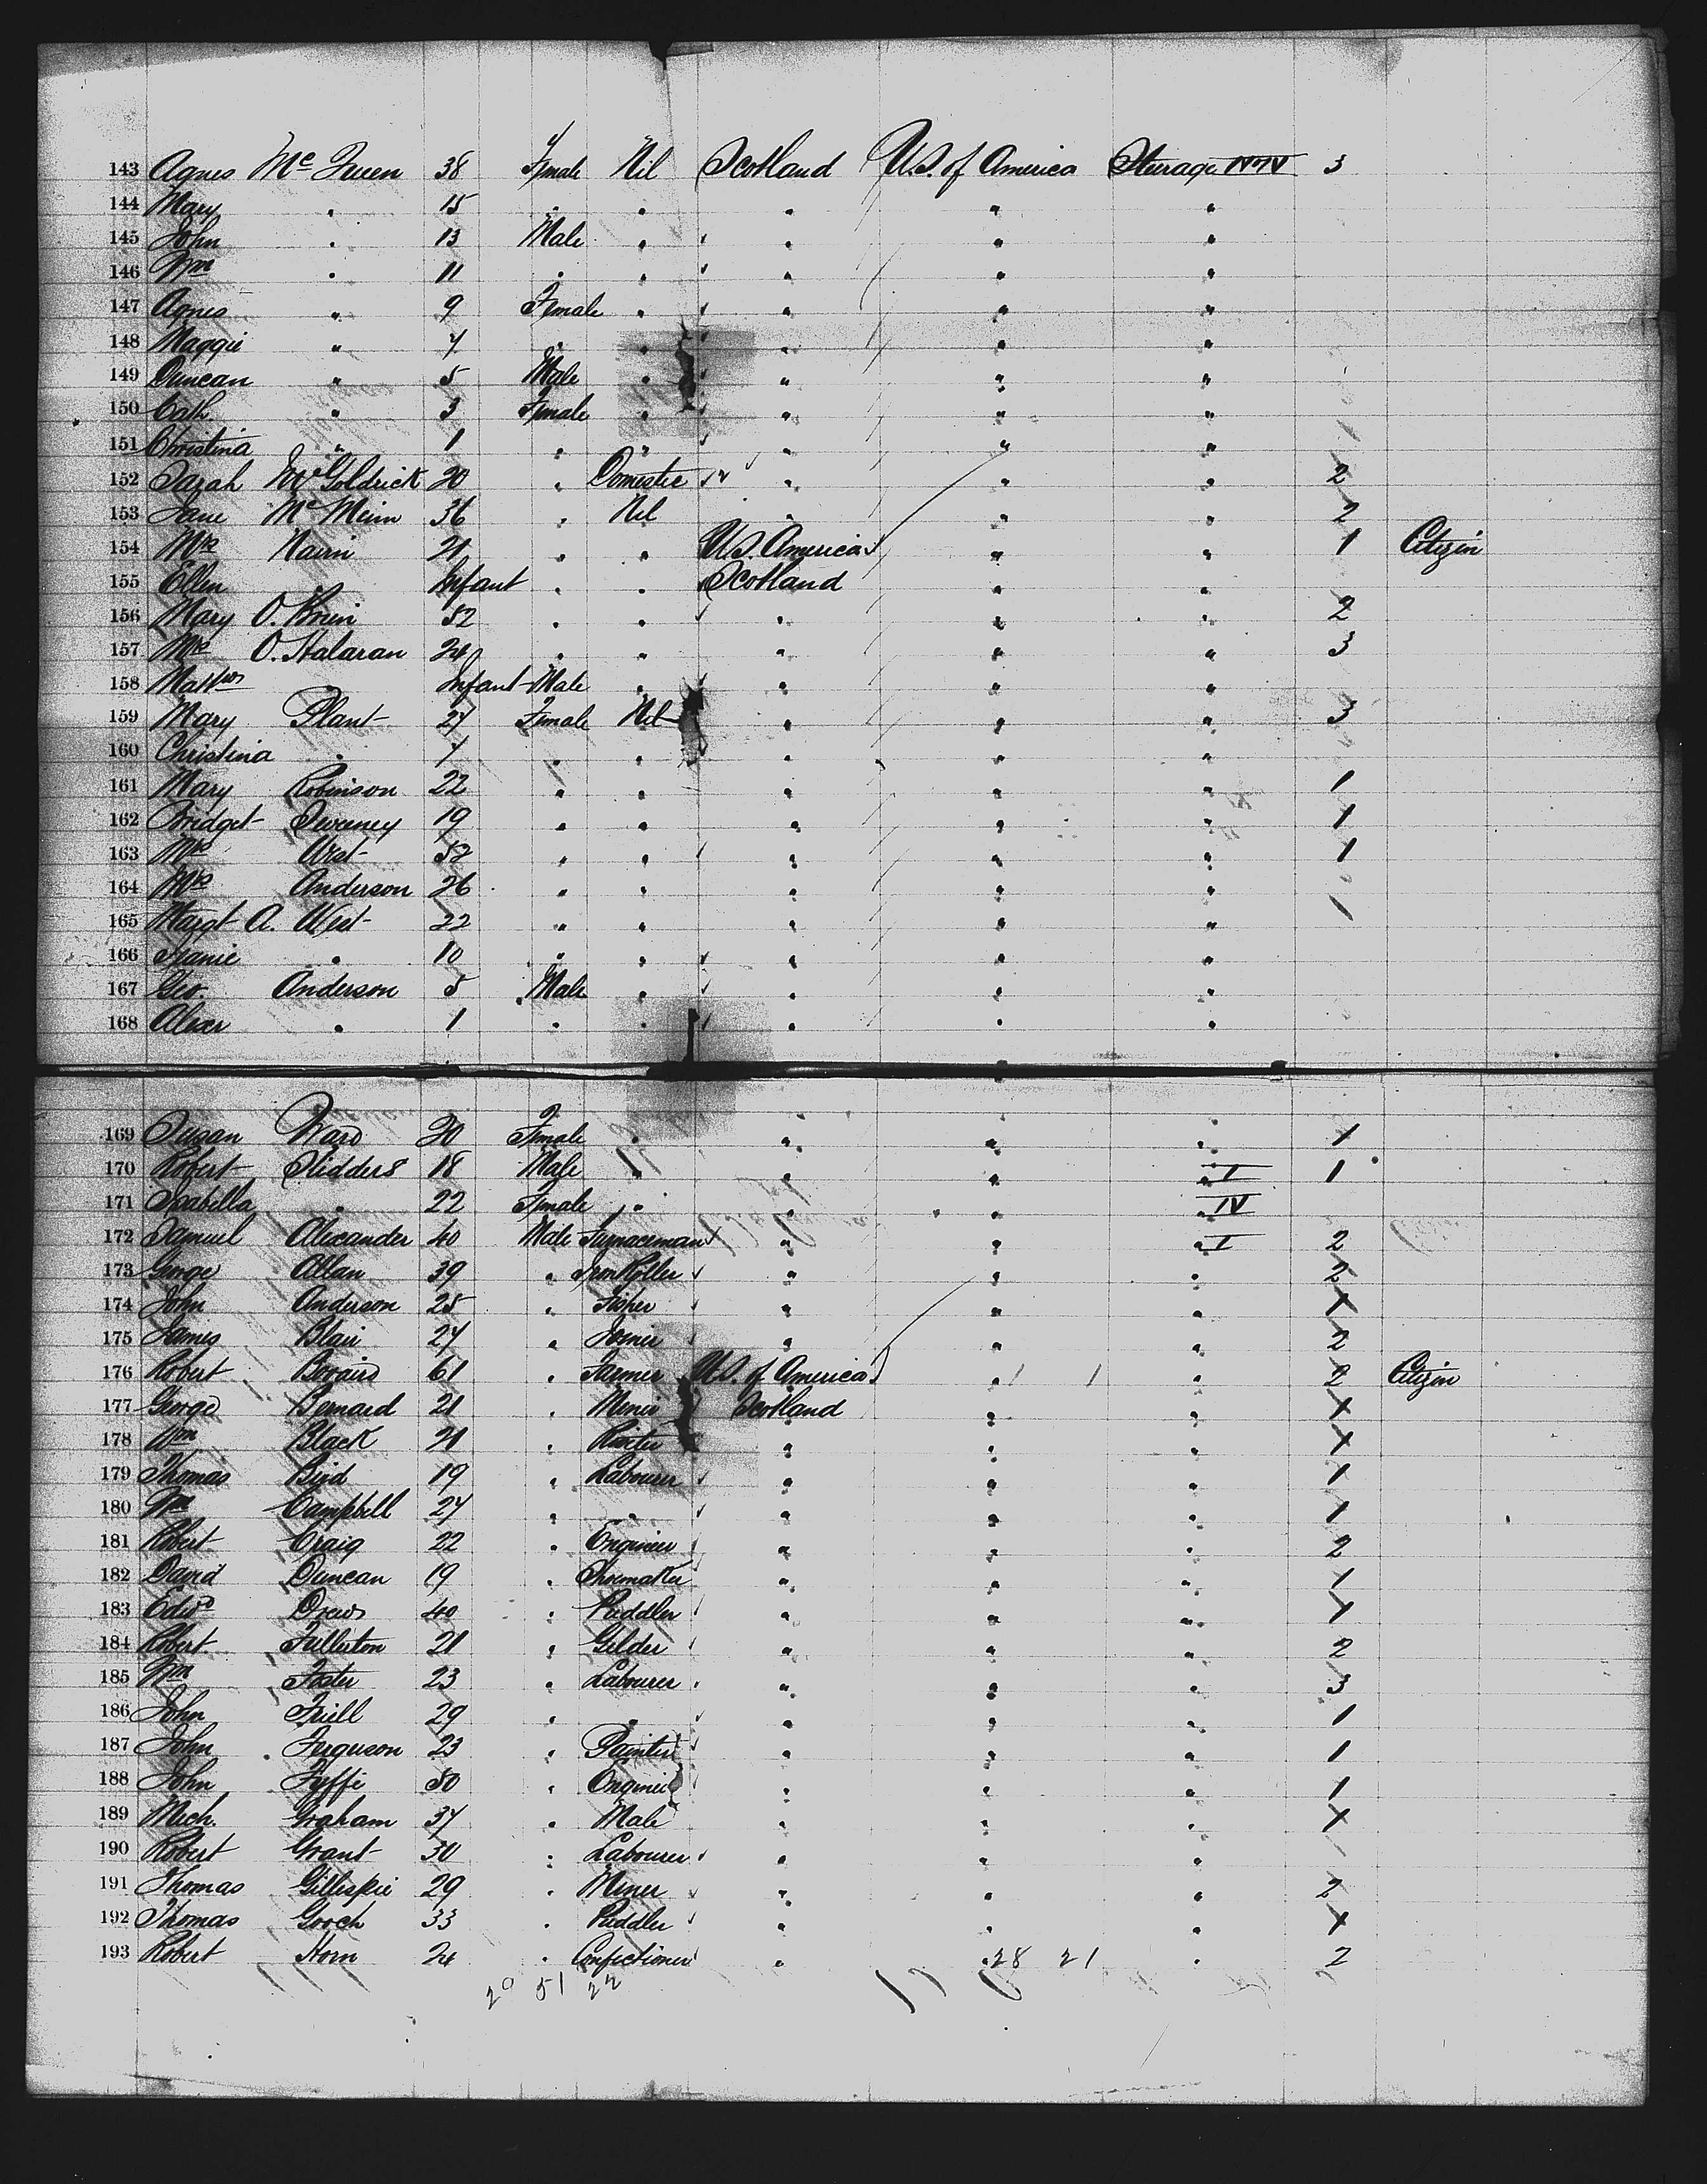 143 Agnes Mc Queen 38 Female Nil Scotland U.S. of America Steerage No IV 3
144 Mary " 15 " " " " "
145 John " 13 Male " " " "
146 Wm " 11 " " " " "
147 Agnes " 9 Female " " " "
148 Maggie " 7 " " " " "
149 Duncan " 5 Male " " " "
150 Cath " 3 Female " " " "
151 Christina " 1 " " " " "
152 Sarah McGoldrick 20 " Domestic " " " 2
153 Jane Mc Meiin 36 " Nil " " " 2
154 Mrs Nairn 21 " " U.S. America " " 1 Citizen
155 Ellen Infant " " Scotland " "
156 Mary O. Brien 52 " " " " " 2
157 Mrs O. Halaran 24 " " " " " 3
158 Matthw Infant Male " " " "
159 Mary Plant 27 Female Nil " " " 3
160 Christina " 7 " " " " "
161 Mary Robinson 22 " " " " " 1
162 Bridget Sweeney 19 " " " " " 1
163 Mrs West 52 " " " " " 1
164 Mrs Anderson 26 " " " " "
165 Margt A. West 22 " " " " " 1
166 10 " " " " "
167 Geo. Anderson 5 Male " " " "
168 Alexr " 1 " " " " "
169 Susan Ward 20 Female " " " " 1
170 Robert Slidders 18 Male " " " " I 1
171 Isabella " 22 Female " " " " IV
172 Samuel Alexander 40 Male Furnaceman " " " I 2
173 George Allan 39 " Iron Roller " " " 2
174 John Anderson 25 " Fisher " " " 1
175 James Blair 27 " Joiner " " " 2
176 Robert Bovaird 61 " Farmer U.S. of America " 1 1 " 2 Citizen
177 George Bernard 21 " Miner Scotland " " 1
178 Wm Black 21 " " " " 1
179 Thomas Bird 19 " Labourer " " " 1
180 Wm Campbell 27 " " " " " 1
181 Robert Craig 22 " Engineer " " " 2
182 David Duncan 19 " Shoemaker " " " 1
183 Edwd Drew 40 " Puddler " " " 1
184 Robert Fullerton 21 " Gilder " " " 2
185 Wm Foster 23 " Labourer " " " 3
186 John Friell 29 " " " " " 1
187 John Ferguson 23 " Painter " " " 1
188 John Fyffe 50 " Engineer " " " 1
189 Mich. Graham 37 " Male " " " 1
190 Robert Grant 30 " Labourer " " "
191 Thomas Gillespie 29 " Miner " " " 2
192 Thomas Gooch 33 " Puddler " " " 1
193 Robert Horn 24 " Confectioner " " 28 21 " 2
29 51 22